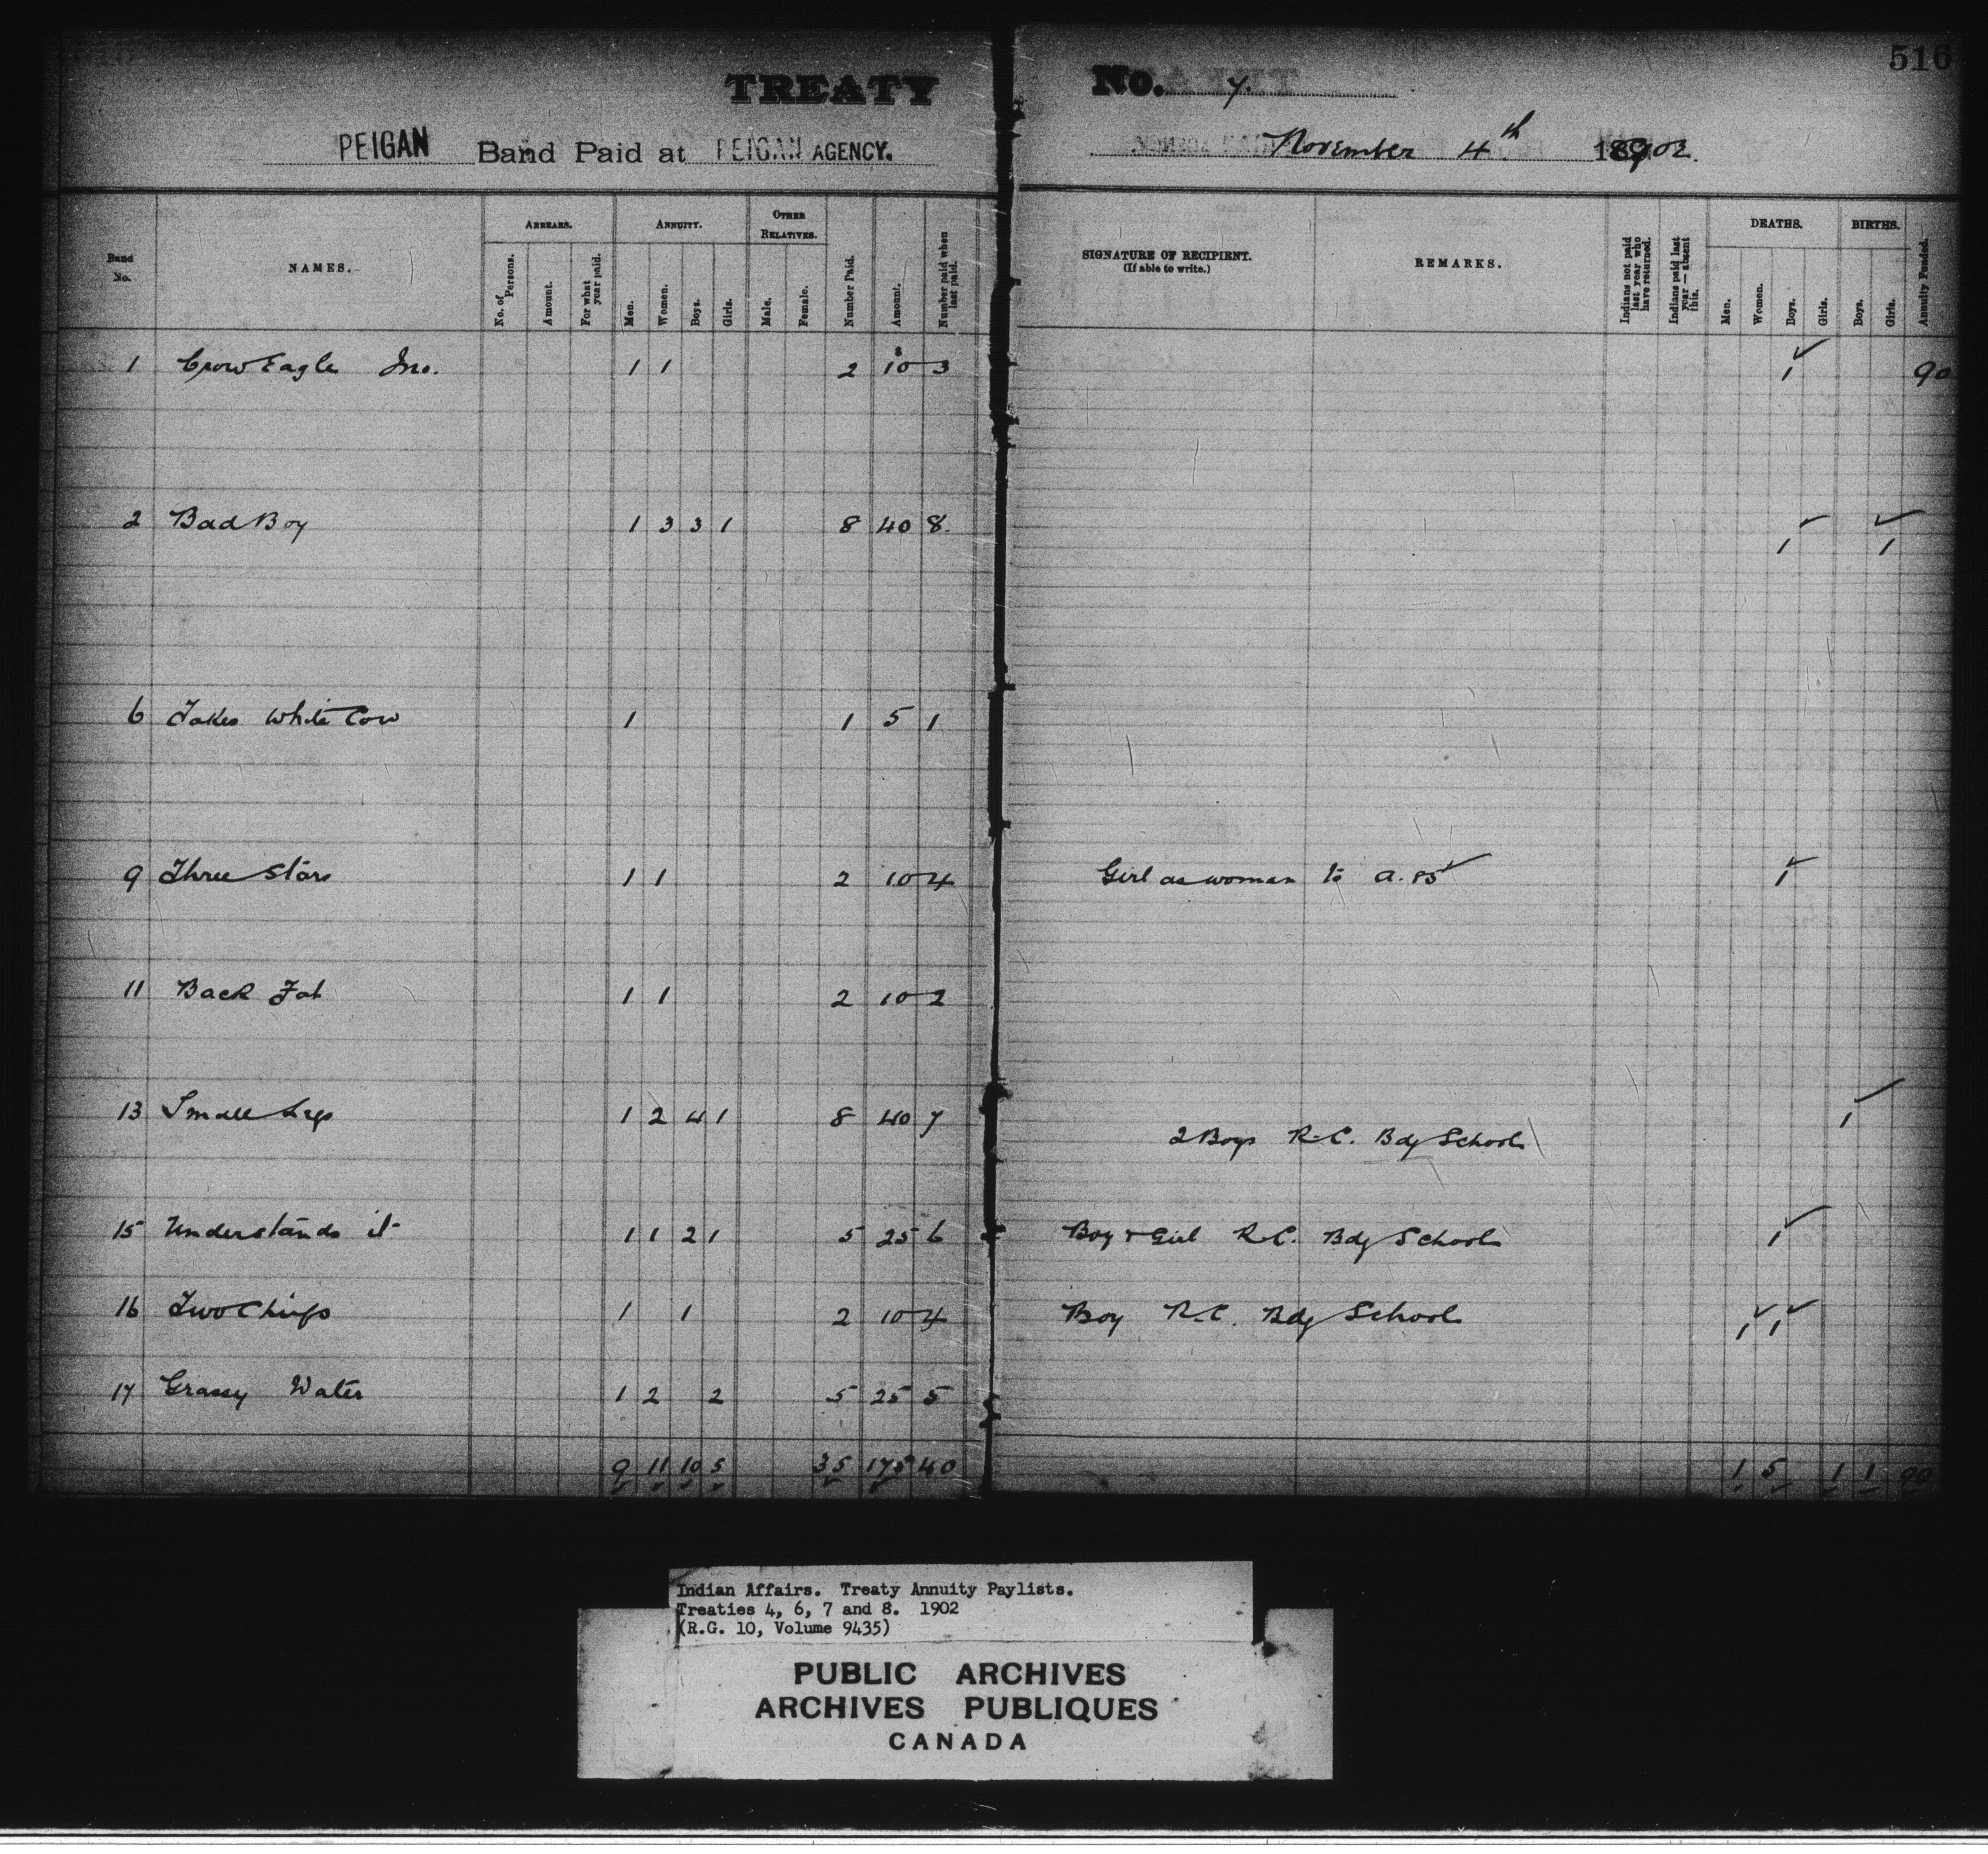 516
TREATY No. 7.
PEIGAN Band Paid at PEIGAN AGENCY. November 4th 1902.
Band No. NAMES. ARREARS. ANNUITY. OTHER RELATIVES. Number Paid. Amount. Number paid when last paid. SIGNATURE OF RECIPIENT. (If able to write.) REMARKS. Indians not paid last year who have returned. Indians paid last year — absent this. DEATHS. BIRTHS. Annuity Funded.
No. of Persons. Amount. For what year paid. Men. Women. Boys. Girls. Male. Female. Men. Women. Boys. Girls. Boys. Girls.
1 Crow Eagle Jno. 1 1 2 10 3 1 90
2 Bad Boy 1 3 3 1 8 40 8. 1 1
6 Takes White Cow 1 1 5 1
9 Three Stars 1 1 2 10 4 Girl as woman to a. 85 1
11 Back Fat 1 1 2 10 2
13 Small Legs 1 2 4 1 8 40 7 1
2 Boys R.C. Bdg School
15 Understands it 1 1 2 1 5 25 6 Boy & Girl R.C. Bdg School 1
16 Two Chiefs 1 1 2 10 4 Boy R.C. Bdg School 1 1
17 Grassy Water 1 2 2 5 25 5
9 11 10 5 35 175 40 1 5 1 1 90
Indian Affairs. Treaty Annuity Paylists.
Treaties 4, 6, 7 and 8. 1902
(R.G. 10, Volume 9435)
PUBLIC ARCHIVES
ARCHIVES PUBLIQUES
CANADA